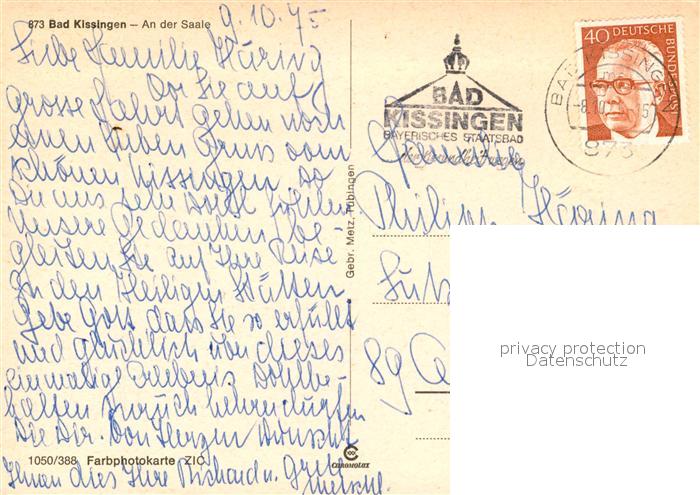 873 Bad Kissingen – An der Saale
9.10.75
Liebe Familie Häring
Bevor Sie auf
grosse Fahrt gehen noch
einen lieben Gruss vom
schönen Kissingen wo
wir uns sehr wohl fühlen
Unsere Gedanken be-
gleiten Sie auf Ihre Reise
zu den Heiligen Stätten
Gebe Gott dass Sie so erfüllt
und glücklich von dieses
einmalige Erlebnis
zurück kehren dürfen
Von Herzen wünscht
Ihnen dies Ihre Richard u. Grete
Gebr. Metz, Tübingen
1050/388 Farbphotokarte ZIC
CHROMOLUX
BAD
KISSINGEN
BAYERISCHES STAATSBAD
BAD KISSINGEN
873
40 DEUTSCHE BUNDESPOST
Familie
Philipp Häring
89
privacy protection
Datenschutz